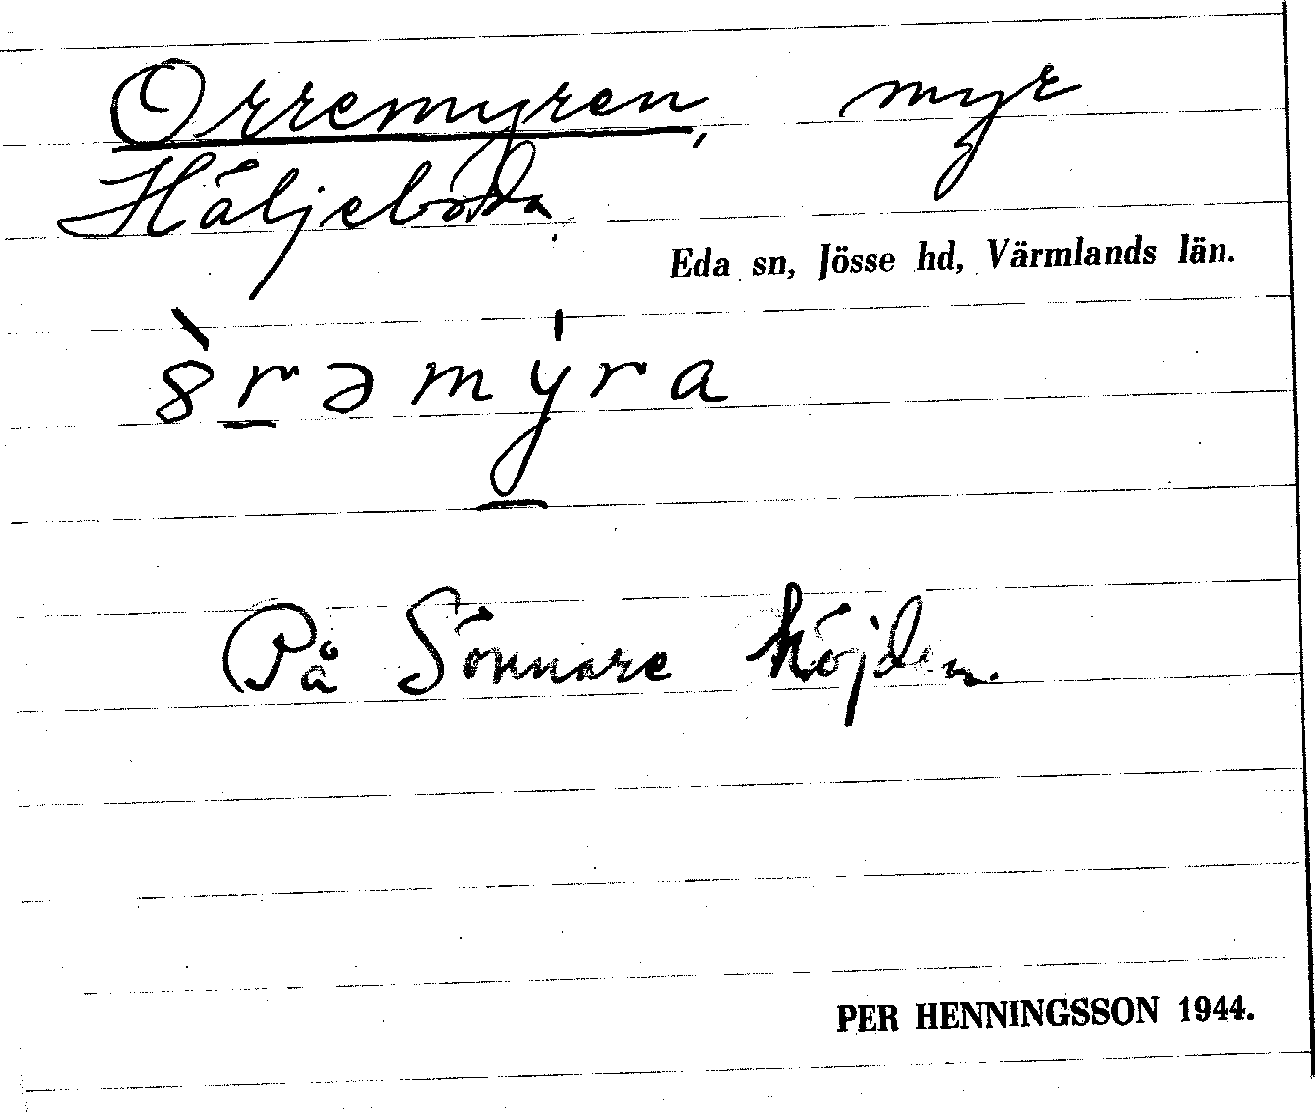 Orremyren, myr
Häljeboda.
Eda sn, Jösse hd, Värmlands län.
På Sönnare höjden.
PER HENNINGSSON 1944.